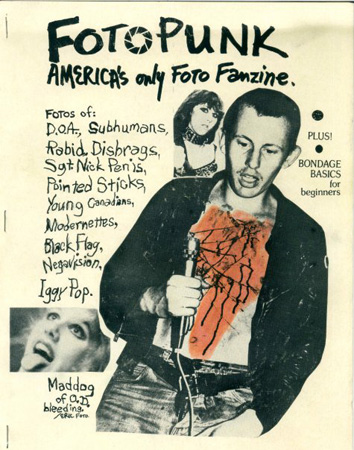 FOTOPUNK
AMERICA's only Foto Fanzine.
FOTOS of:
D.O.A., Subhumans,
Rabid Dishrags,
Sgt Nick Penis,
Pointed Sticks,
Young Canadians,
Modernettes,
Black Flag,
Negavision,
Iggy Pop.
PLUS!
BONDAGE
BASICS
for
beginners
Maddog
of
bleeding.
Foto